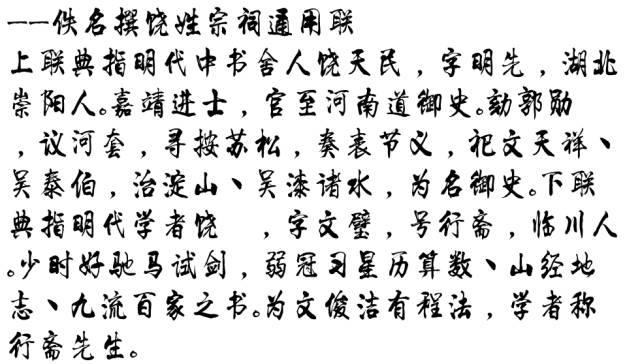 ——佚名撰饶姓宗祠通用联
上联典指明代中书舍人饶天民，字明先，湖北
崇阳人。嘉靖进士，官至河南道御史。劾郭勋
，议河套，寻按苏松，奏表节义，祀文天祥、
吴泰伯，治淀山、吴漆诸水，为名御史。下联
典指明代学者饶　，字文璧，号行斋，临川人
。少时好驰马试剑，弱冠习星历算数、山经地
志、九流百家之书。为文俊洁有程法，学者称
行斋先生。